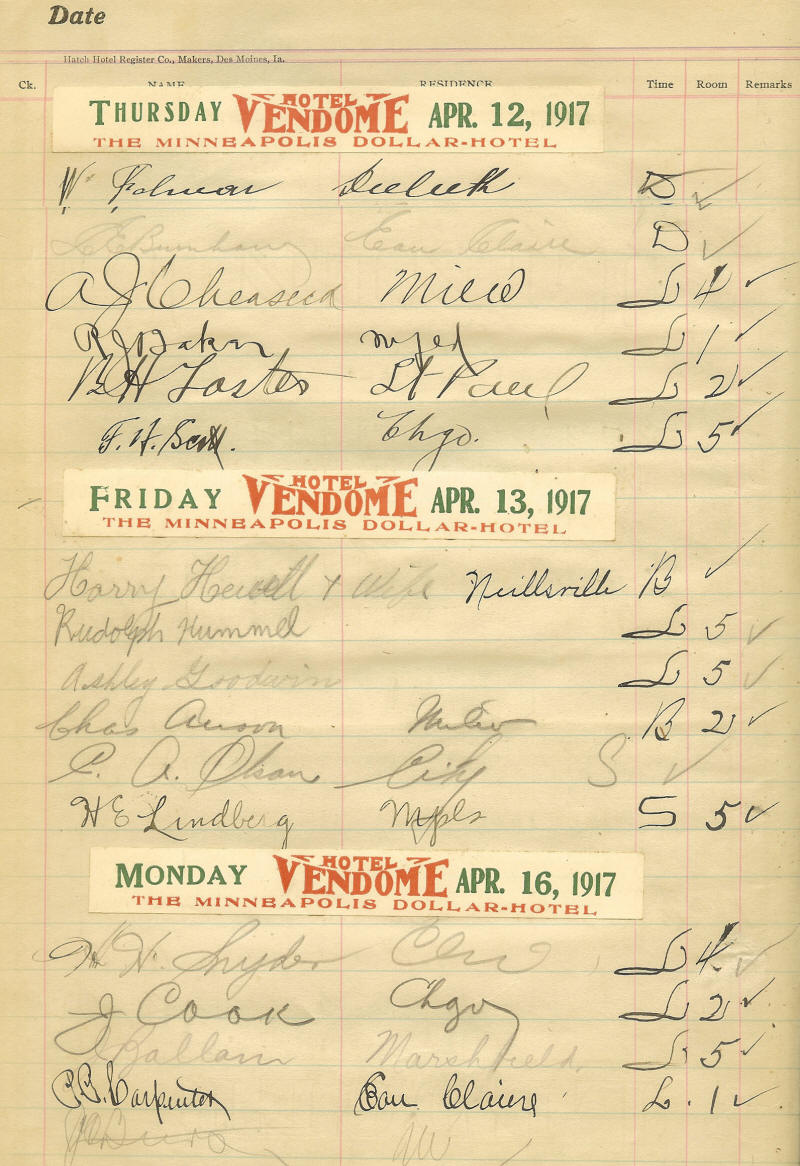 Date
Hatch Hotel Register Co., Makers, Des Moines, Ia.
Ck. NAME RESIDENCE Time Room Remarks
THURSDAY HOTEL VENDOME APR. 12, 1917
THE MINNEAPOLIS DOLLAR-HOTEL
W Duluth D ✓
L E Burnham Eau Claire D ✓
A J L 4 ✓
R J Baker L 1 ✓
B H Foster St Paul L 2 ✓
F. H. Scott. Chgo. L 5 ✓
FRIDAY HOTEL VENDOME APR. 13, 1917
THE MINNEAPOLIS DOLLAR-HOTEL
Harry Hewett + Wife Neillsville B ✓
Rudolph Hummel L 5 ✓
Ashley Goodwin L 5 ✓
Chas Anson B 2 ✓
C. A. Olson City S ✓
H E Lindberg Mpls S 5 ✓
MONDAY HOTEL VENDOME APR. 16, 1917
THE MINNEAPOLIS DOLLAR-HOTEL
H. Snyder L 4 ✓
J Cook Chgo L 2 ✓
Ballam Marshfield L 5 ✓
C. C. Carpenter Eau Claire L. 1 ✓